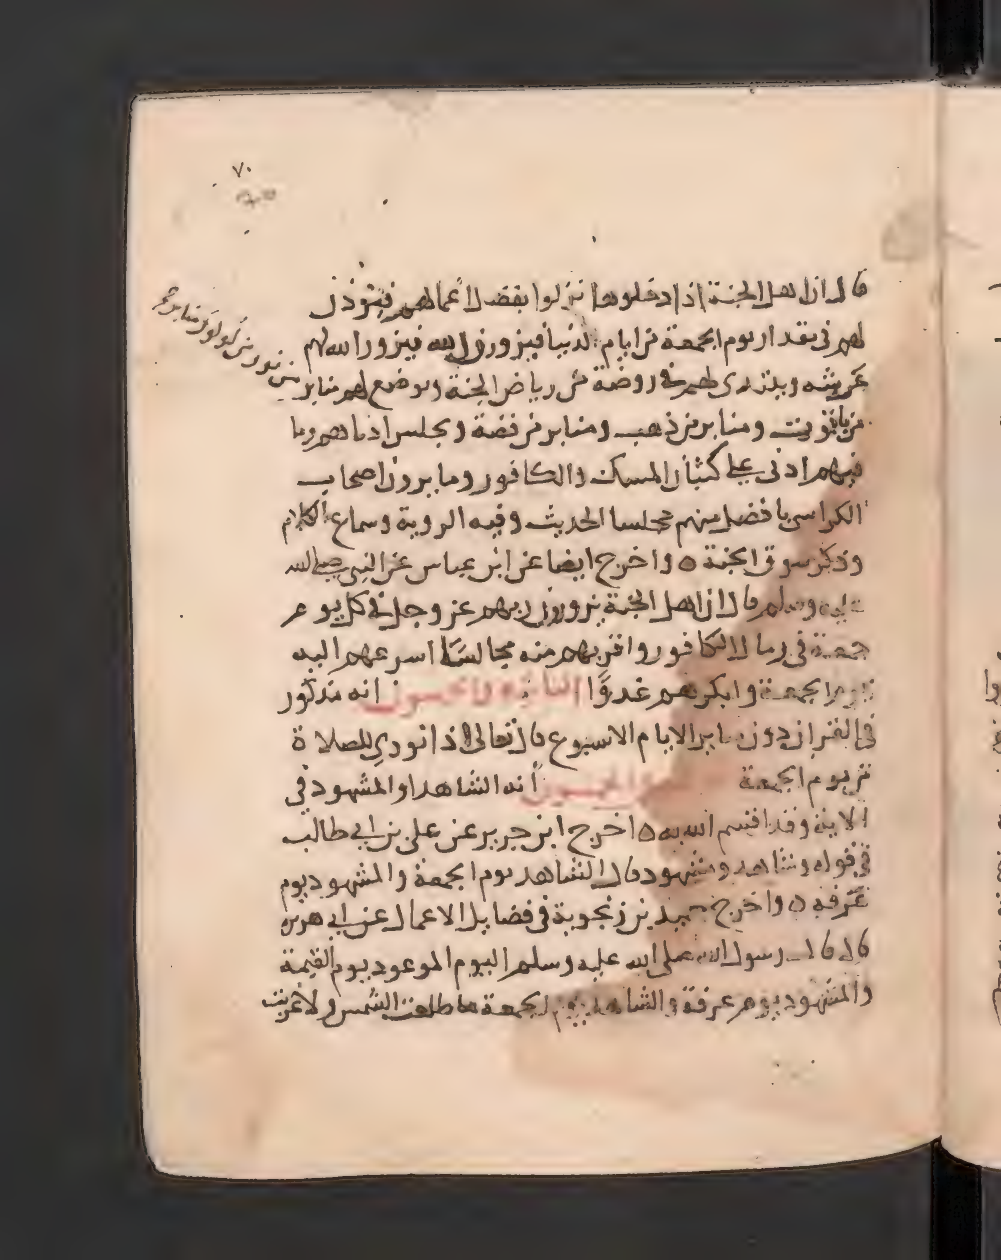 ٧٠
قال ان اهل الجنة اذا دخلوها نزلوا بفضل اعمالهم فيوذن
لهم في مقدار يوم الجمعة من ايام الدنيا فيزورون الله فيبرز الله لهم
عرشه ويتبدى لهم في روضة من رياض الجنة وتوضع لهم منابر
من نور ومنابر من لولو ومنابر
من ياقوت ومنابر من ذهب ومنابر من فضة ويجلس ادناهم وما
فيهم ادنى على كثبان المسك والكافور وما يرون اصحاب
الكراسي بافضل منهم مجلسا الحديث وفيه الروية وسماع الكلام
وذكر سوق الجنة ٥ واخرج ايضا عن ابن عباس عن النبي صلى الله
عليه وسلم قال ان اهل الجنة يزورون ربهم عز وجل في كل يوم
جمعة في رمال الكافور واقربهم منه مجالسًا اسرعهم اليه
يوم الجمعة وابكرهم غدوًا والخمسون انه مذكور
في القران دون ساير الايام الاسبوع قال تعالى اذا نودي للصلاة
من يوم الجمعة والخمسون أنه الشاهد او المشهود في
الاية وقد اقسم الله به ٥ اخرج ابن جرير عن علي بن ابي طالب
في قوله وشاهد ومشهود قال الشاهد يوم الجمعة والمشهود يوم
عرفة ٥ واخرج حميد بن زنجوية في فضايل الاعمال عن ابي هريرة
قال قال رسول الله صلى الله عليه وسلم اليوم الموعود يوم القيمة
والمشهود يوم عرفة والشاهد يوم الجمعة ما طلعت الشمس ولا غربت